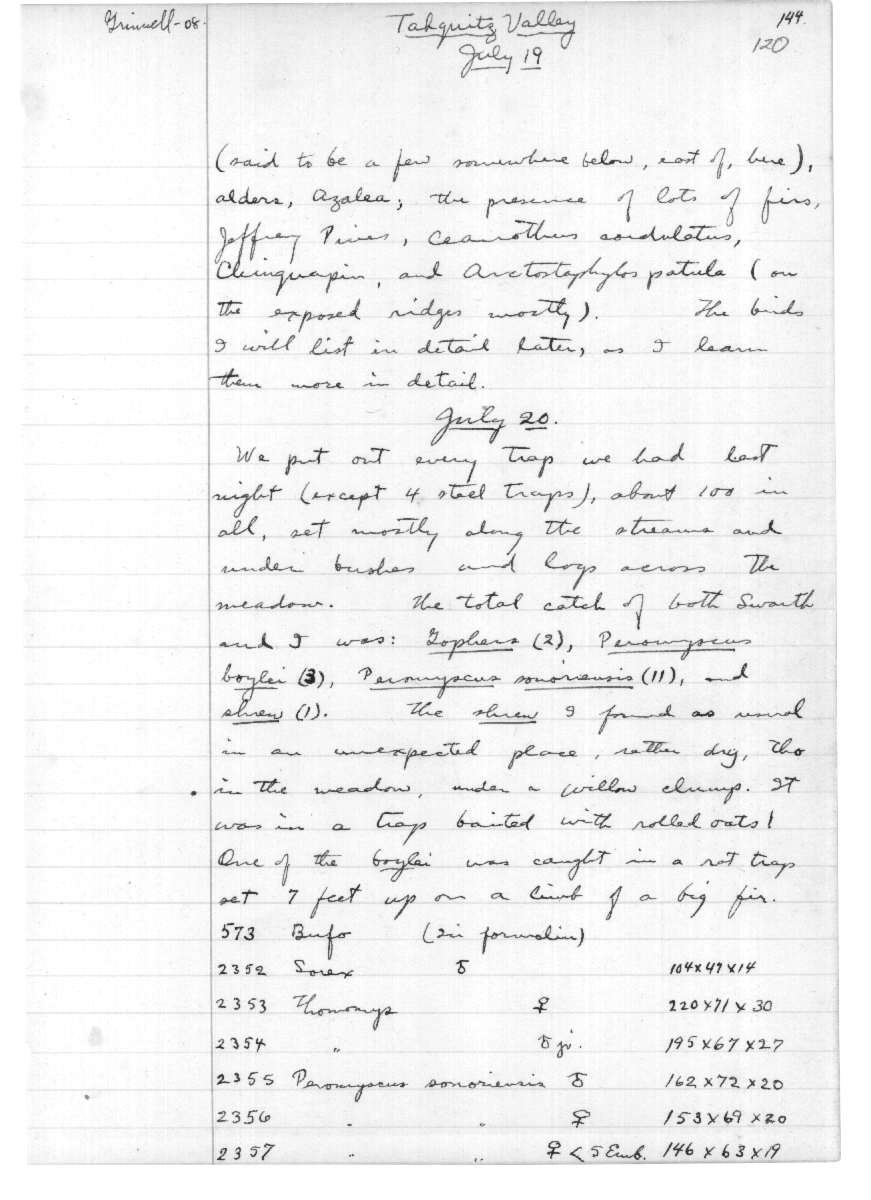 Grinnell-08.
Tahquitz Valley
July 19
144.
120
(said to be a few somewhere below, east of, here),
alders, Azalea; the presence of lots of firs,
Jeffrey Pines, Ceanothus cordulatus,
Chinquapin, and Arctostaphylos patula (on
the exposed ridges mostly). The birds
I will list in detail later, as I learn
them more in detail.
July 20.
We put out every trap we had last
night (except 4 steel traps), about 100 in
all, set mostly along the streams and
under bushes and logs across the
meadow. The total catch of both Swarth
and I was: Gophers (2), Peromyscus
boylei (3), Peromyscus sonoriensis (11), and
shrew (1). The shrew I found as usual
in an unexpected place, rather dry, tho
in the meadow, under a willow clump. It
was in a trap baited with rolled oats!
One of the boylei was caught in a rat trap
set 7 feet up on a limb of a big fir.
573 Bufo (2 in formalin)
2352 Sorex ♂ 104x47x14
2353 Thomomys ♀ 220x71x30
2354 " ♂ jv. 195x67x27
2355 Peromyscus sonoriensis ♂ 162x72x20
2356 " " ♀ 153x69x20
2357 " " ♀ < 5 Emb. 146x63x19